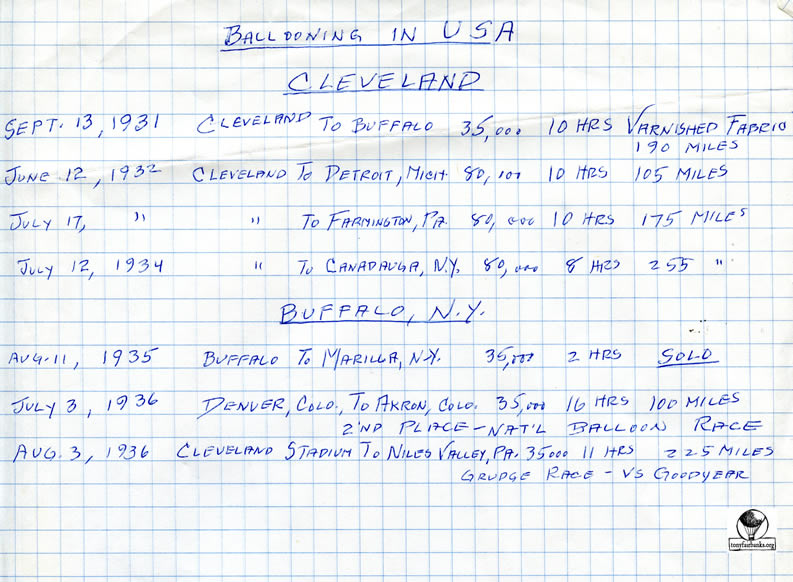 BALLOONING IN USA
CLEVELAND
SEPT. 13, 1931 CLEVELAND TO BUFFALO 35,000 10 HRS VARNISHED FABRIC
190 MILES
JUNE 12, 1932 CLEVELAND TO DETROIT, MICH. 80,000 10 HRS 105 MILES
JULY 17, " " TO FARMINGTON, PA. 80,000 10 HRS 175 MILES
JULY 12, 1934 " TO CANADAUGA, N.Y. 80,000 8 HRS 255 "
BUFFALO, N.Y.
AUG. 11, 1935 BUFFALO TO MARILLA, N.Y. 35,000 2 HRS SOLO
JULY 3, 1936 DENVER, COLO., TO AKRON, COLO. 35,000 16 HRS 100 MILES
2'ND PLACE - NAT'L BALLOON RACE
AUG. 3, 1936 CLEVELAND STADIUM TO NILES VALLEY, PA. 35000 11 HRS 225 MILES
GRUDGE RACE - VS GOODYEAR
tonyfairbanks.org